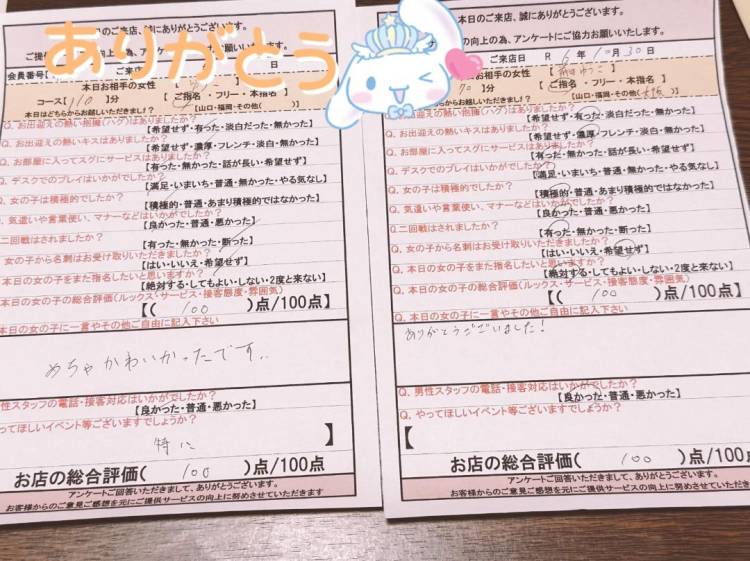 ありがとう
本日のご来店、誠にありがとうございます。
会員番号【
本日お相手の女性
コース【 110 】分
【ご指名・フリー・本指名】
本日はどちらからお越しいただきました？
【山口・福岡・その他( )】
Q. お出迎えの熱い抱擁(ハグ)はありましたか？
【希望せず・有った・淡白だった・無かった】
Q. お出迎えの熱いキスはありましたか？
【希望せず・濃厚・フレンチ・淡白・無かった】
Q. お部屋に入ってスグにサービスはありましたか？
【有った・無かった・話が長い・希望せず】
Q. デスクでのプレイはいかがでしたか？
【満足・いまいち・普通・無かった・やる気なし】
Q. 女の子は積極的でしたか？
【積極的・普通・あまり積極的ではなかった】
Q. 気遣いや言葉使い、マナーなどはいかがでしたか？
【良かった・普通・悪かった】
二回戦はされましたか？
【有った・無かった・断った】
女の子から名刺はお受け取りいただきましたか？
【はい・いいえ・希望せず】
Q. 本日の女の子をまた指名したいと思いますか？
【絶対する・してもよい・しない・2度と来ない】
本日の女の子の総合評価(ルックス・サービス・接客態度・雰囲気)
【( 100 )点/100点】
本日の女の子に一言やその他ご自由に記入下さい
めちゃかわいかったです..
性スタッフの電話・接客対応はいかがでしたか？
【良かった・普通・悪かった】
やってほしいイベント等ございますでしょうか？
特に 】
お店の総合評価( 100 )点/100点
アンケートご回答いただきまして、ありがとうございます。
お客様からのご意見ご感想を元にご提供サービスの向上に努めさせていただきます
本日のご来店、誠にありがとうございます。
の向上の為、アンケートにご協力お願いいたします。
ご来店日 R 6年 10月 30日
お相手の女性
70 】分
【ご指名・フリー・本指名】
お越しいただきましたか？
【山口・福岡・その他( )】
Q. お出迎えの熱い抱擁(ハグ)はありましたか？
【希望せず・有った・淡白だった・無かった】
Q. お出迎えの熱いキスはありましたか？
【希望せず・濃厚・フレンチ・淡白・無かった】
Q. お部屋に入ってスグにサービスはありましたか？
【有った・無かった・話が長い・希望せず】
Q. デスクでのプレイはいかがでしたか？
【満足・いまいち・普通・無かった・やる気なし】
Q. 女の子は積極的でしたか？
【積極的・普通・あまり積極的ではなかった】
Q. 気遣いや言葉使い、マナーなどはいかがでしたか？
【良かった・普通・悪かった】
Q. 二回戦はされましたか？
【有った・無かった・断った】
Q. 女の子から名刺はお受け取りいただきましたか？
【はい・いいえ・希望せず】
Q. 本日の女の子をまた指名したいと思いますか？
【絶対する・してもよい・しない・2度と来ない】
Q. 本日の女の子の総合評価(ルックス・サービス・接客態度・雰囲気)
【( 100 )点/100点】
Q. 本日の女の子に一言やその他ご自由に記入下さい
ありがとうございました！
Q. 男性スタッフの電話・接客対応はいかがでしたか？
【良かった・普通・悪かった】
Q. やってほしいイベント等ございますでしょうか？
【 】
お店の総合評価( 100 )点/100点
アンケートご回答いただきまして、ありがとうございます。
お客様からのご意見ご感想を元にご提供サービスの向上に努めさせていただきます